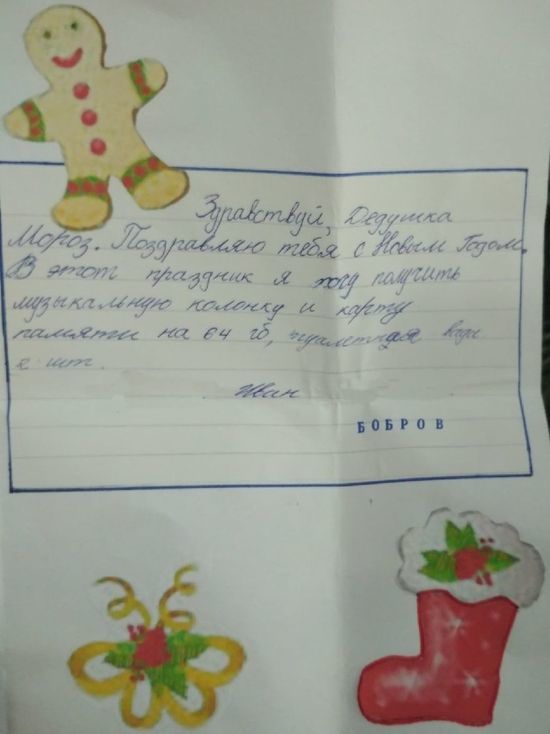 Здравствуй, Дедушка
Мороз. Поздравляю тебя с Новым Годом.
В этот праздник я хочу получить
музыкальную колонку и карту
памяти на 64 гб, туалетная вода
2 шт.
Иван
БОБРОВ